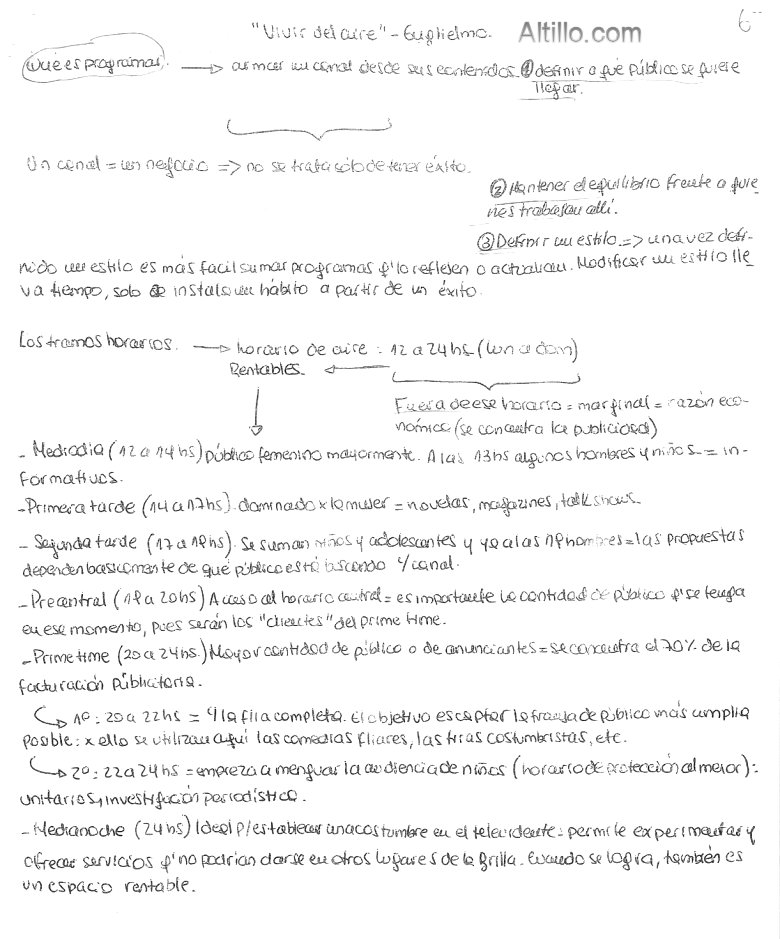 "Vivir del aire" - Guglielmo. Altillo.com 6
Qué es programar. → armar un canal desde sus contenidos. ① definir a qué público se quiere
llegar.
Un canal = un negocio => no se trata sólo de tener éxito.
② Mantener el equilibrio frente a quie
nes trabajan allí.
③ Definir un estilo => una vez defi-
nido un estilo es más facil sumar programas q' lo reflejen o actualicen. Modificar un estilo lle
va tiempo, solo se instala un hábito a partir de un éxito.
Los tramos horarios. → horario de aire: 12 a 24hs (lun a dom)
Rentables. ←
Fuera de ese horario = marginal = razón eco-
nómica (se concentra la publicidad)
- Mediodia (12 a 14hs) público femenino mayormente. A las 13hs algunos hombres y niños = in-
formativos.
- Primera tarde (14 a 17hs). dominado x la mujer = novelas, magazines, talk shows.
- Segunda tarde (17 a 19hs). Se suman niños y adolescentes y ya a las 19 hombres = las propuestas
dependen basicamente de qué público está buscando c/canal.
- Precentral (19 a 20hs) Acceso al horario central = es importante la cantidad de público q' se tenga
en ese momento, pues serán los "clientes" del prime time.
- Prime time (20 a 24hs.) Mayor cantidad de público o de anunciantes = se concentra el 70% de la
facturación públicitaria.
↳ 1º: 20 a 22hs = la flia completa. El objetivo es captar la franja de público más amplia
posible: x ello se utilizan aquí las comedias fliares, las tiras costumbristas, etc.
↳ 2º: 22 a 24hs = empieza a menguar la audiencia de niños (horario de protección al menor):
unitarios, investigación periodística.
- Medianoche (24hs) Ideal p/establecer una costumbre en el televidente: permite experimentar y
ofrecer servicios q' no podrían darse en otros lugares de la grilla. Cuando se logra, también es
un espacio rentable.